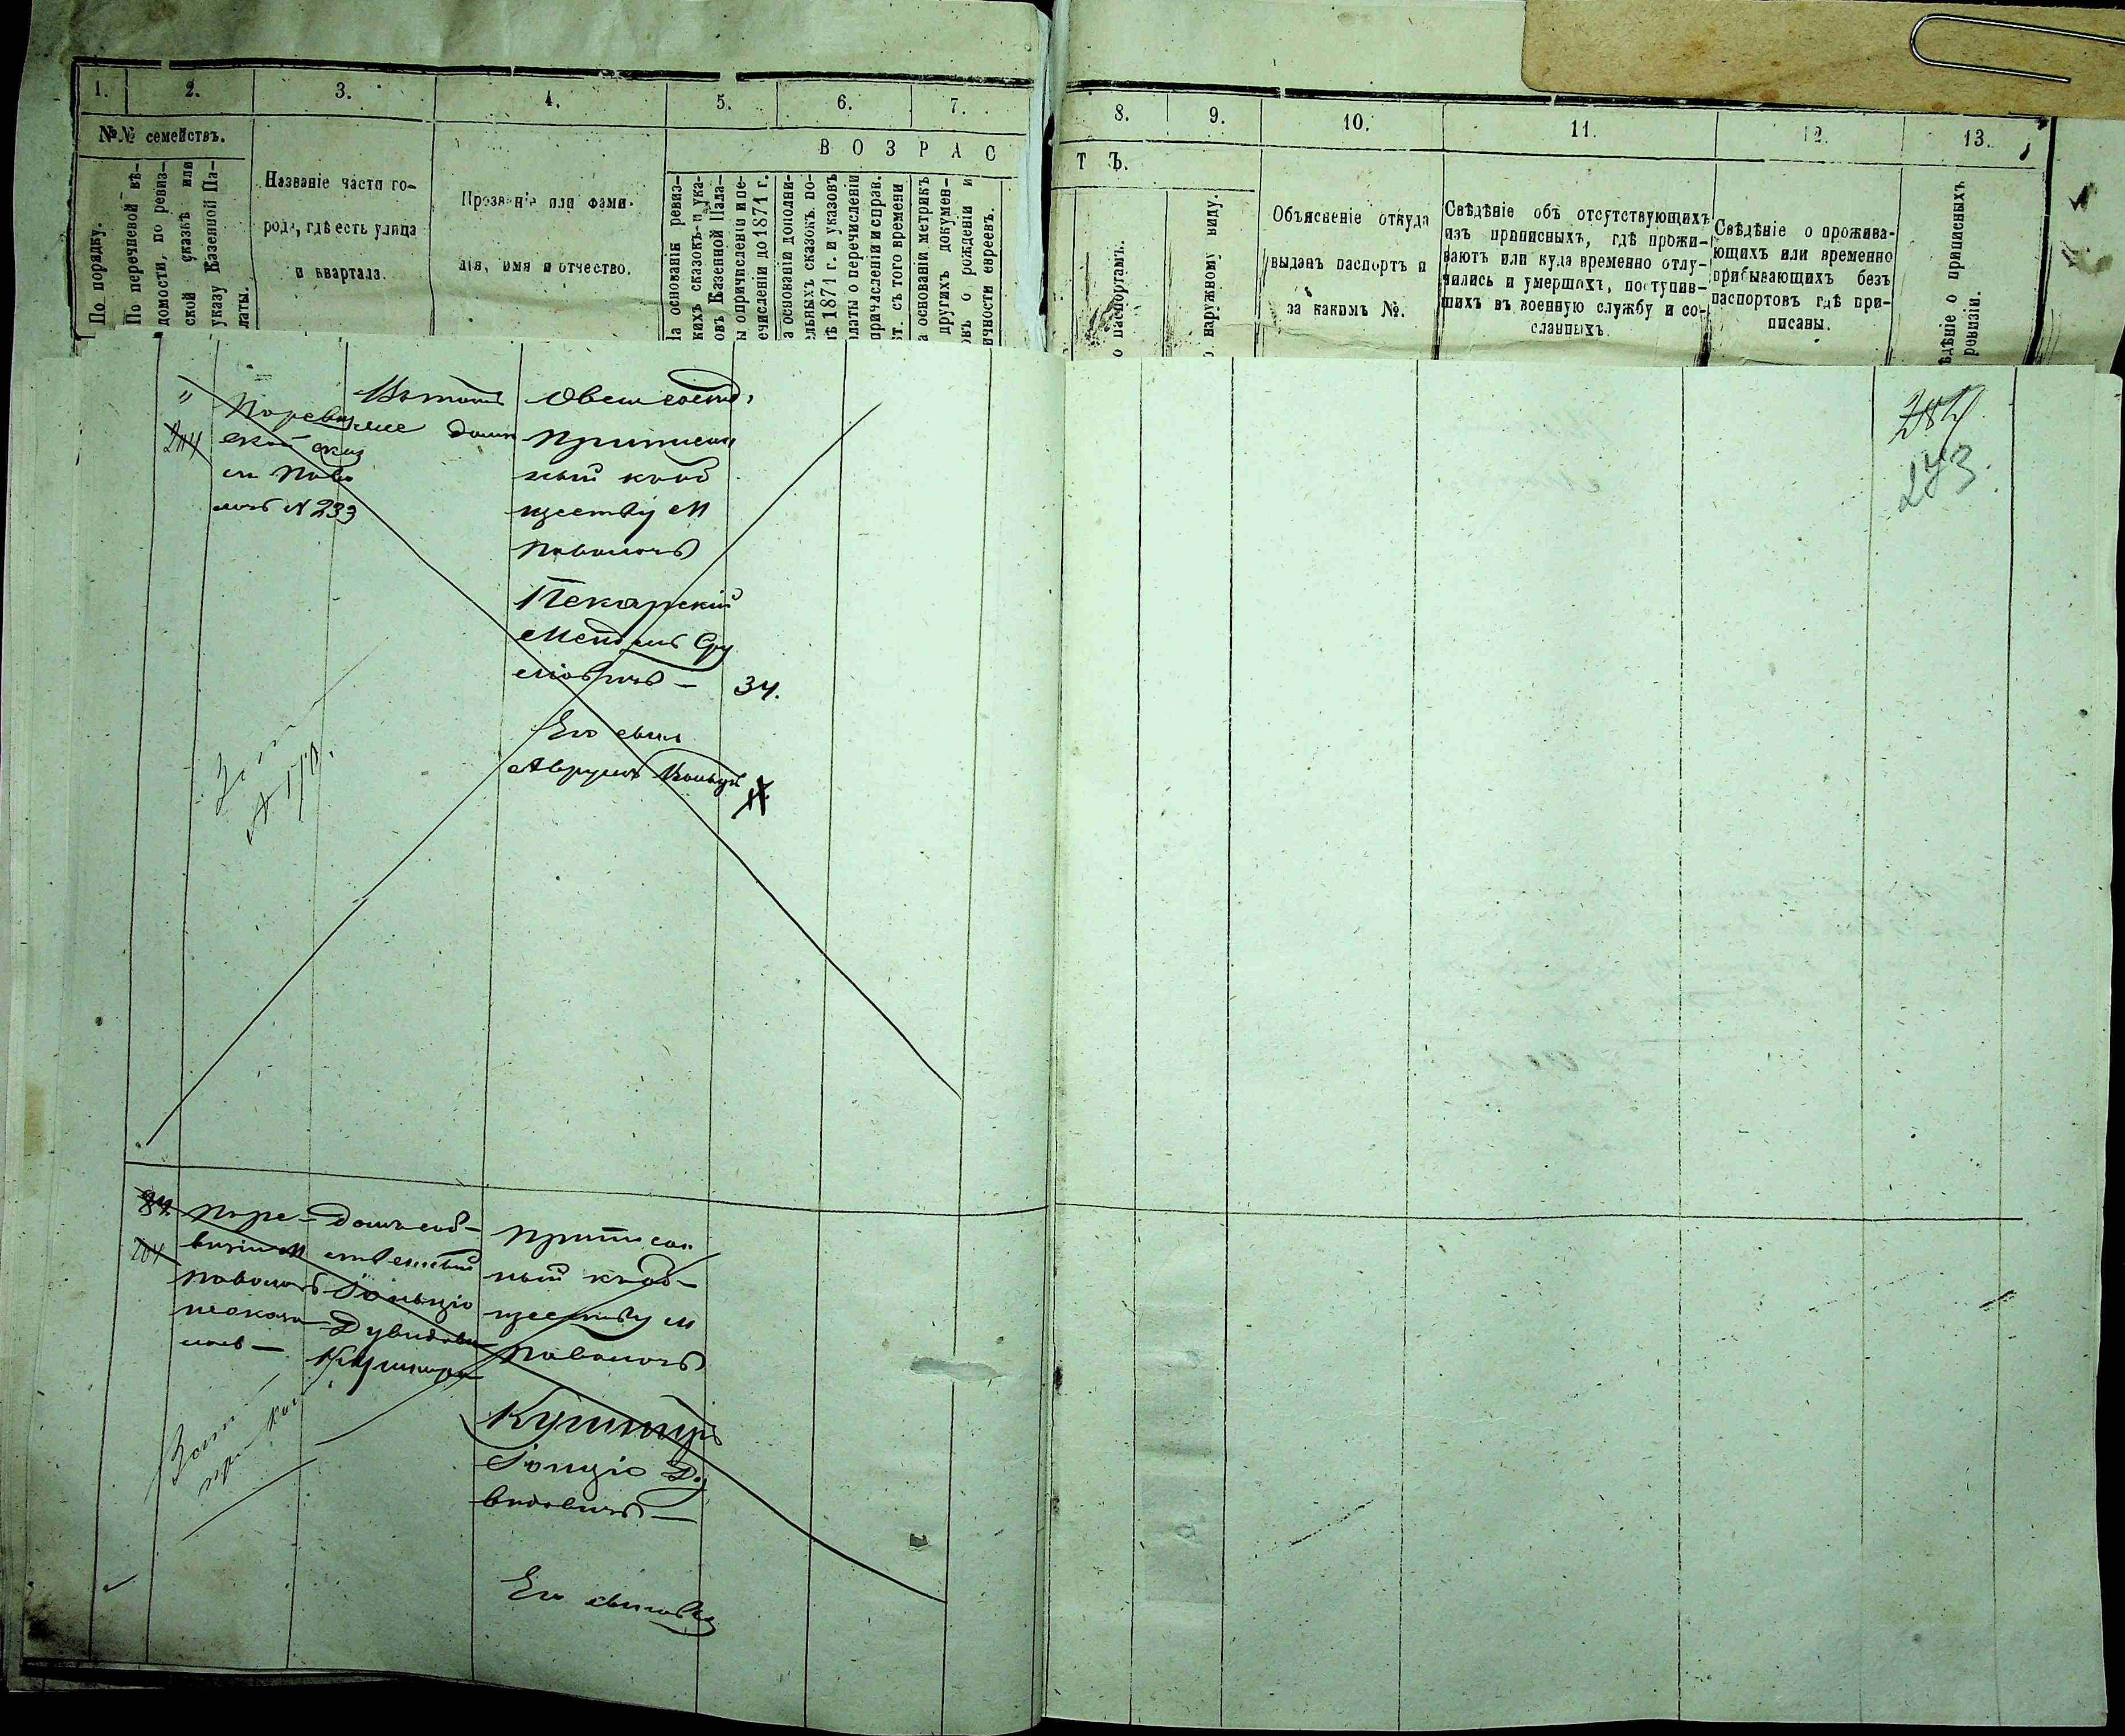 1.
2.
3.
4.
5.
6.
7.
8.
9.
10.
11.
12.
13.
№№ семействъ.
По порядку.
По перечневой вѣ-
домости, по ревиз-
ской сказкѣ или
указу Казенной Па-
латы.
Названіе части го-
рода, гдѣ есть улица
и квартала.
Прозваніе или фами-
лія, имя и отчество.
ВОЗРАС
ТЪ.
На основаніи ревиз-
скихъ сказокъ и ука-
зовъ Казенной Пала-
ты о причисленіи и пе-
речисленіи до 1871 г.
На основаніи дополни-
тельныхъ сказокъ по-
слѣ 1871 г. и указовъ
Палаты о перечисленіи
причисленіи и справ.
съ того времени
На основаніи метрикъ
другихъ докумен-
товъ о рожденіи и
личности евреевъ.
По паспортамъ.
По наружному виду.
Объясненіе откуда
выданъ паспортъ и
за какимъ №.
Свѣдѣніе объ отсутствующихъ
изъ приписныхъ, гдѣ прожи-
ваютъ или куда временно отлу-
чились и умершихъ, поступив-
шихъ въ военную службу и со-
сланныхъ.
Свѣдѣніе о прожива-
ющихъ или временно
прибывающихъ безъ
паспортовъ гдѣ при-
писаны.
Свѣдѣніе о приписныхъ
ревизіи.
284
273.
"
204
По ревиз
ской сказ
м Паво
лочь № 233
Въ томъ
же домѣ
приписан
ный къ об
ществу М
Паволочь
Пекарскій
Мендель Сру
ліовичъ — 34.
Его сынъ
Аврумъ
№ 170.
204
По ре-
визіи м
Паволочь
не оказа
лось —
Домъ соб-
ственный
Дувидови
Кушниръ
Приписан
ный къ об-
ществу м
Паволочь
Кушниръ
Іонціо Ду
видовичъ —
Его сыновья